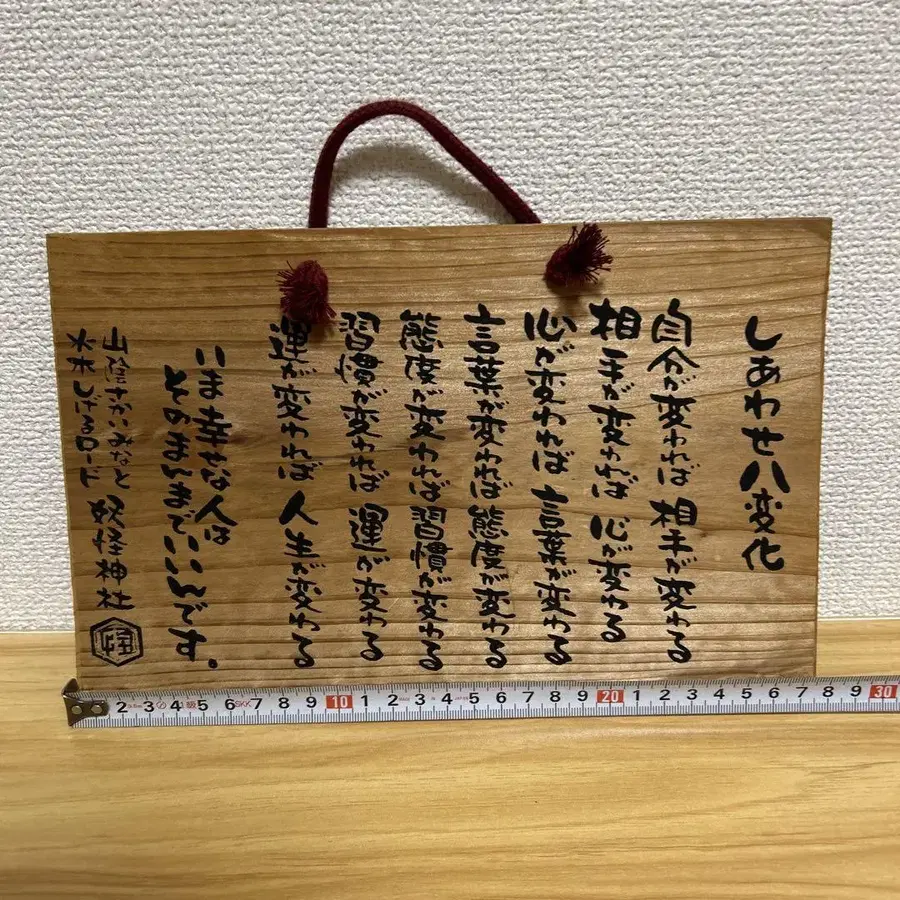 しあわせ八変化
自分が変われば 相手が変わる
相手が変われば 心が変わる
心が変われば 言葉が変わる
言葉が変われば 態度が変わる
態度が変われば 習慣が変わる
習慣が変われば 運が変わる
運が変われば 人生が変わる
いま幸せな人は
そのまんまでいいんです。
山陰さかいみなと
水木しげるロード 妖怪神社
怪
2 3 4 5 6 7 8 9 10 1 2 3 4 5 6 7 8 9 20 1 2 3 4 5 6 7 8 9 30